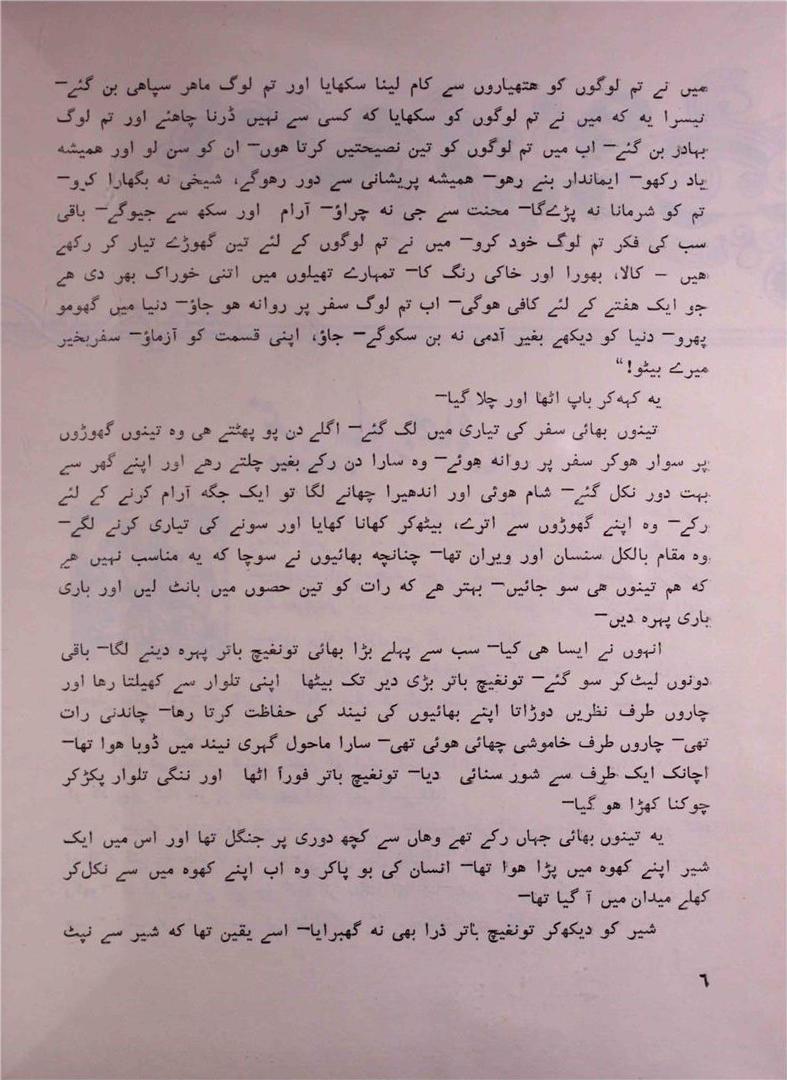 میں نے تم لوگوں کو ھتھیاروں سے کام لینا سکھایا اور تم لوگ ماھر سپاھی بن گئے—
تیسرا یه که میں نے تم لوگوں کو سکھایا که کسی سے نہیں ڈرنا چاھئے اور تم لوگ
بہادر بن گئے— اب میں تم لوگوں کو تین نصیحتیں کرتا ھوں— ان کو سن لو اور ھمیشه
یاد رکھو— ایماندار بنے رھو— ھمیشه پریشانی سے دور رھوگے، شیخی نه بگھارا کرو—
تم کو شرمانا نه پڑےگا— محنت سے جی نه چراؤ— آرام اور سکھ سے جیوگے— باقی
سب کی فکر تم لوگ خود کرو— میں نے تم لوگوں کے لئے تین گھوڑے تیار کر رکھے
ھیں — کالا، بھورا اور خاکی رنگ کا— تمہارے تھیلوں میں اتنی خوراک بھر دی ھے
جو ایک ھفتے کے لئے کافی ھوگی— اب تم لوگ سفر پر روانه ھو جاؤ— دنیا میں گھومو
پھرو— دنیا کو دیکھے بغیر آدمی نه بن سکوگے— جاؤ، اپنی قسمت کو آزماؤ— سفربخیر
میرے بیٹو!“
یه کہه‌کر باپ اٹھا اور چلا گیا—
تینوں بھائی سفر کی تیاری میں لگ گئے— اگلے دن پو پھٹتے ھی وه تینوں گھوڑوں
پر سوار ھوکر سفر پر روانه ھوئے— وه سارا دن رکے بغیر چلتے رھے اور اپنے گھر سے
بہت دور نکل گئے— شام ھوئی اور اندھیرا چھانے لگا تو ایک جگه آرام کرنے کے لئے
رکے— وه اپنے گھوڑوں سے اترے، بیٹھ‌کر کھانا کھایا اور سونے کی تیاری کرنے لگے—
وه مقام بالکل سنسان اور ویران تھا— چنانچه بھائیوں نے سوچا که یه مناسب نہیں ھے
که ھم تینوں ھی سو جائیں— بہتر ھے که رات کو تین حصوں میں بانٹ لیں اور باری
باری پہره دیں—
انہوں نے ایسا ھی کیا— سب سے پہلے بڑا بھائی تونغیچ باتر پہره دینے لگا— باقی
دونوں لیٹ‌کر سو گئے— تونغیچ باتر بڑی دیر تک بیٹھا اپنی تلوار سے کھیلتا رھا اور
چاروں طرف نظریں دوڑاتا اپنے بھائیوں کی نیند کی حفاظت کرتا رھا— چاندنی رات
تھی— چاروں طرف خاموشی چھائی ھوئی تھی— سارا ماحول گہری نیند میں ڈوبا ھوا تھا—
اچانک ایک طرف سے شور سنائی دیا— تونغیچ باتر فوراً اٹھا اور ننگی تلوار پکڑکر
چوکنا کھڑا ھو گیا—
یه تینوں بھائی جہاں رکے تھے وھاں سے کچھ دوری پر جنگل تھا اور اس میں ایک
شیر اپنے کھوه میں پڑا ھوا تھا— انسان کی بو پاکر وه اب اپنے کھوه میں سے نکل‌کر
کھلے میدان میں آ گیا تھا—
شیر کو دیکھ‌کر تونغیچ باتر ذرا بھی نه گھبرایا— اسے یقین تھا که شیر سے نپٹ
٦